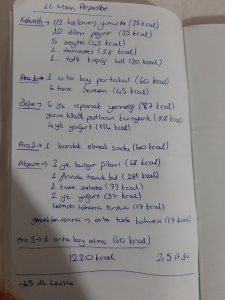 16 Nisan Perşembe
Kahvaltı → 1/2 haşlanmış yumurta (35 kcal)
1/2 dilim peynir (75 kcal)
5 zeytin (45 kcal)
1 domates (28 kcal)
1 tatlı kaşığı bal (20 kcal)
Ara 1 → 1 orta boy portakal (60 kcal)
6 tane badem (45 kcal)
Öğle → 6 yk ıspanak yemeği (87 kcal)
yarım közde patlıcan (108 kcal)
4 yk yoğurt (114 kcal)
Ara 2 → 1 bardak elmalı soda (60 kcal)
Akşam → 3 yk bulgur pilavı (68 kcal)
1 fırında tavuk but (291 kcal)
1 kase salata (73 kcal)
2 yk yoğurt (57 kcal)
lahana turşusu (17 kcal)
yemekten sonra → orta türk kahvesi (17 kcal)
Ara 3 → 1 orta boy elma (60 kcal)
1220 kcal 2,5 lt su
+45 dk